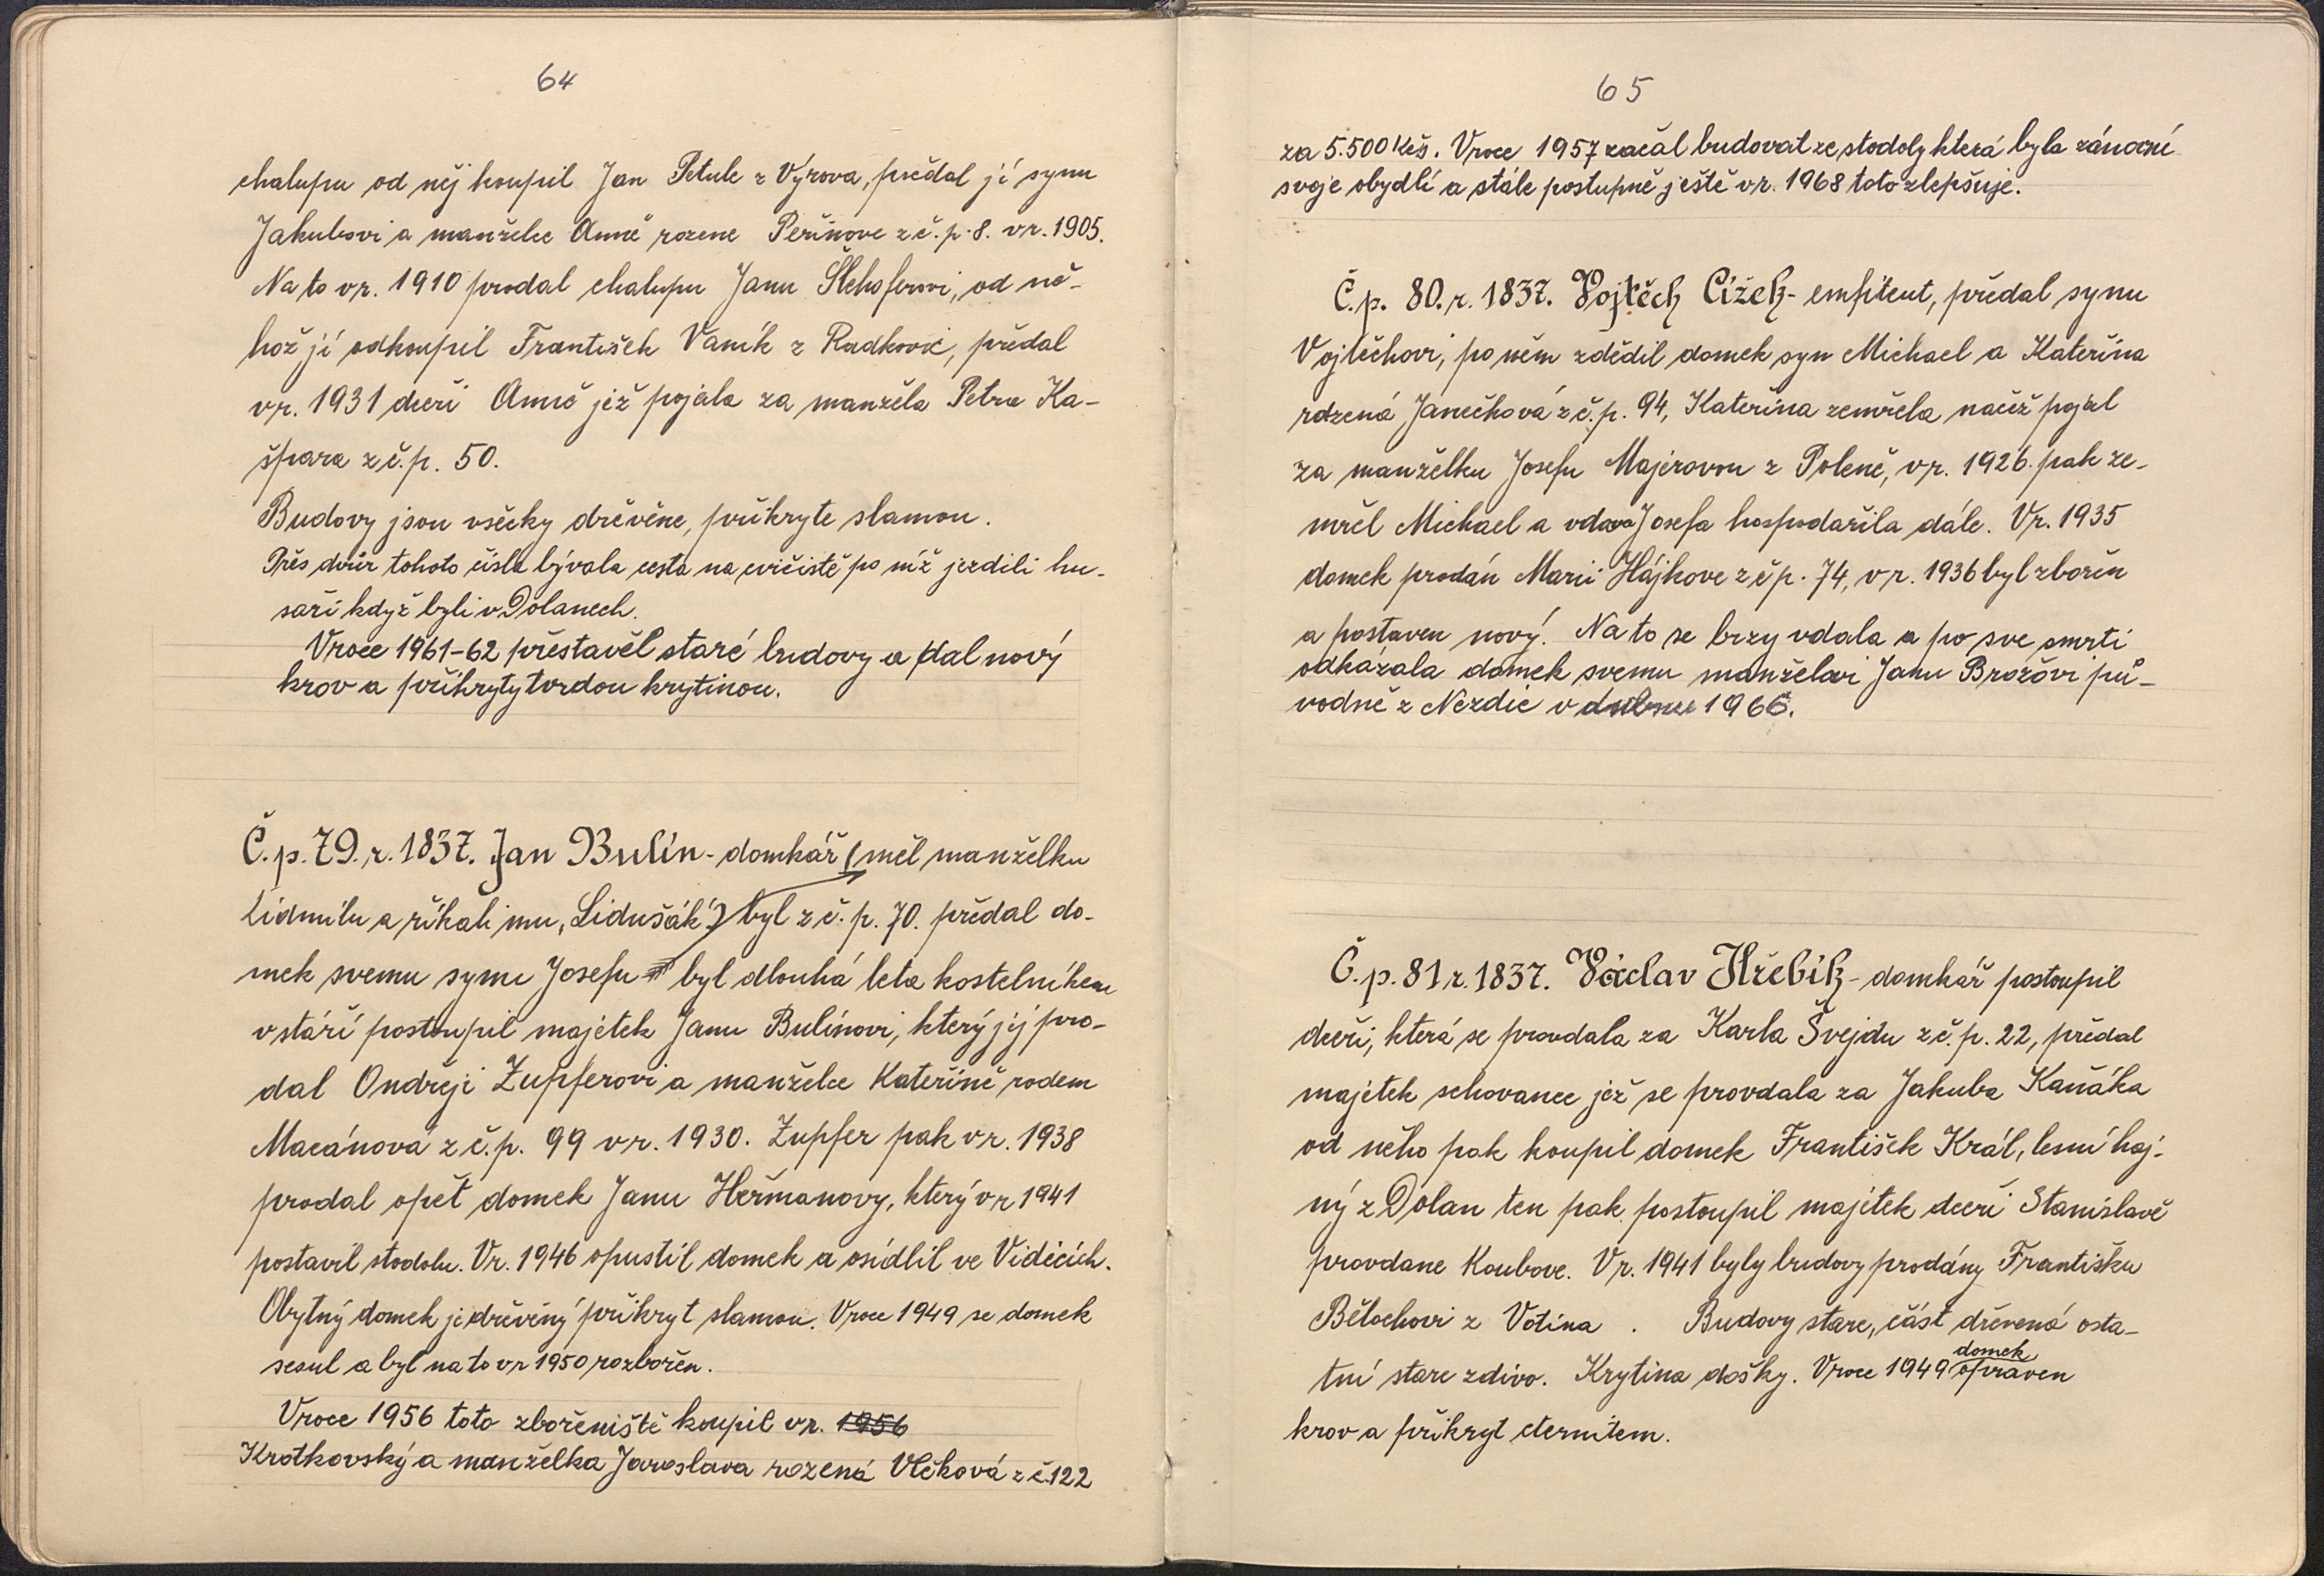 64
chalupu od něj koupil Jan Petule z Výrova, předal jí synu
Jakubovi a manželce Anně rozene Peřinove z č. p. 8. v r. 1905.
Na to v r. 1910 prodal chalupu Janu Šlehoferovi, od ně-
hož jí odkoupil František Vaník z Radkovic, předal
v r. 1931 dceři Anně jež pojala za manžela Petra Ka-
špara z č. p. 50.
Budovy jsou všecky dřevěne, přikryte slamou.
Přes dvůr tohoto čísla bývala cesta na cvičiště po níž jezdili hu-
saři když byli v Dolanech.
V roce 1961-62 přestavěl staré budovy a dal nový
krov a přikryty tvrdou krytinou.
Č. p. 79. r. 1837. Jan Bulín - domkář (měl manželku
Lidmilu a říkali mu „Lidušák") byl z č. p. 70. předal do-
mek svemu synu Josefu byl dlouhá leta kostelníkem
v stáří postoupil majetek Janu Bulínovi, který jej pro-
dal Ondřeji Zupferovi a manželce Kateřině rodem
Macánová z č. p. 99 v r. 1930. Zupfer pak v r. 1938
prodal opět domek Janu Heřmanovy, který v r 1941
postavil stodolu. V r. 1946 opustil domek a osídlil ve Vidicích.
Obytný domek je dřevěný přikryt slamou. V roce 1949 se domek
sesul a byl na to v r 1950 rozbořen.
V roce 1956 toto zbořeniště koupil v r. 1956
Krotkovský a manželka Jaroslava rozená Vlčková z č. 122
65
za 5.500 Kčs. V roce 1957 začal budovat ze stodoly která byla zánovní
svoje obydlí a stále postupně ještě v r. 1968 toto zlepšuje.
Č. p. 80. r. 1837. Vojtěch Cížek - emfiteut, předal synu
Vojtěchovi, po něm zdědil domek syn Michael a Kateřina
rozená Janečková z č. p. 94, Kateřina zemřela načež pojal
za manželku Josefu Majerovou z Poleně, v r. 1926. pak ze-
mřel Michael a vdova Josefa hospodařila dále. V r. 1935
domek prodán Marii Hájkove z č p. 74, v r. 1936 byl zbořen
a postaven nový. Na to se brzy vdala a po sve smrti
odkázala domek svemu manželovi Janu Brožovi pů-
vodně z Nezdic v dubnu 1966.
Č. p. 81 r. 1837. Václav Hřebík - domkář postoupil
dceři, která se provdala za Karla Švejdu z č. p. 22, předal
majetek schovance jež se provdala za Jakuba Kaňáka
od něho pak koupil domek František Král, lesní haj-
ný z Dolan ten pak postoupil majetek dceři Stanislavě
provdane Koubove. V r. 1941 byly budovy prodány Františku
Bělochovi z Votína . Budovy stare, část dřevená osta-
tní stare zdivo. Krytina došky. V roce 1949 domek opraven
krov a přikryt eternitem.